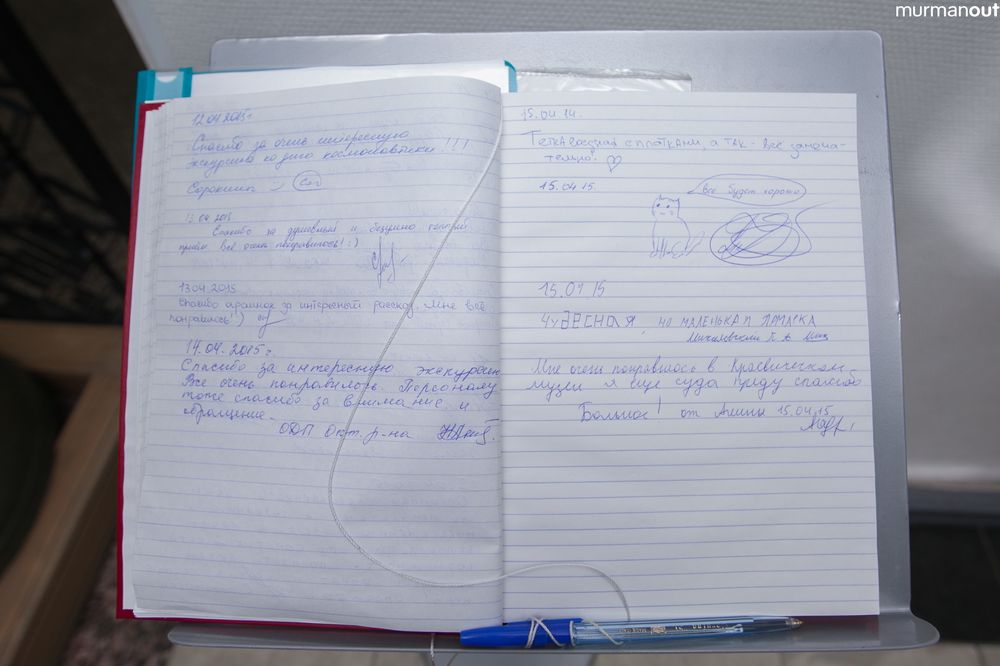 murmanout
12.04.2015г
Спасибо за очень интересную
экскурсию по дню космонавтики!!!
13.04.2015
Спасибо за душевный и безумно теплый
приём всё очень понравилось! :)
13.04.2015
Спасибо за интересный рассказ. Мне всё
понравилось!)
14.04.2015г
Спасибо за интересную экскурсию
Все очень понравилось. Персоналу
тоже спасибо за внимание и
обращение.
ОДП Окт. р-на
15.04.14.
с прятками, а так - все замеча-
тельно! ♡
15.04.15.
Все будет хорошо
15.04.15
Чудесная, но маленькая
Мне очень понравилось в Краевическом
музеи я еще суда приду спасибо
Большое! от Алины 15.04.15